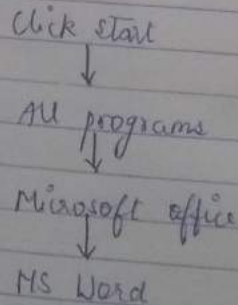 Click start
All programs
Microsoft office
MS Word